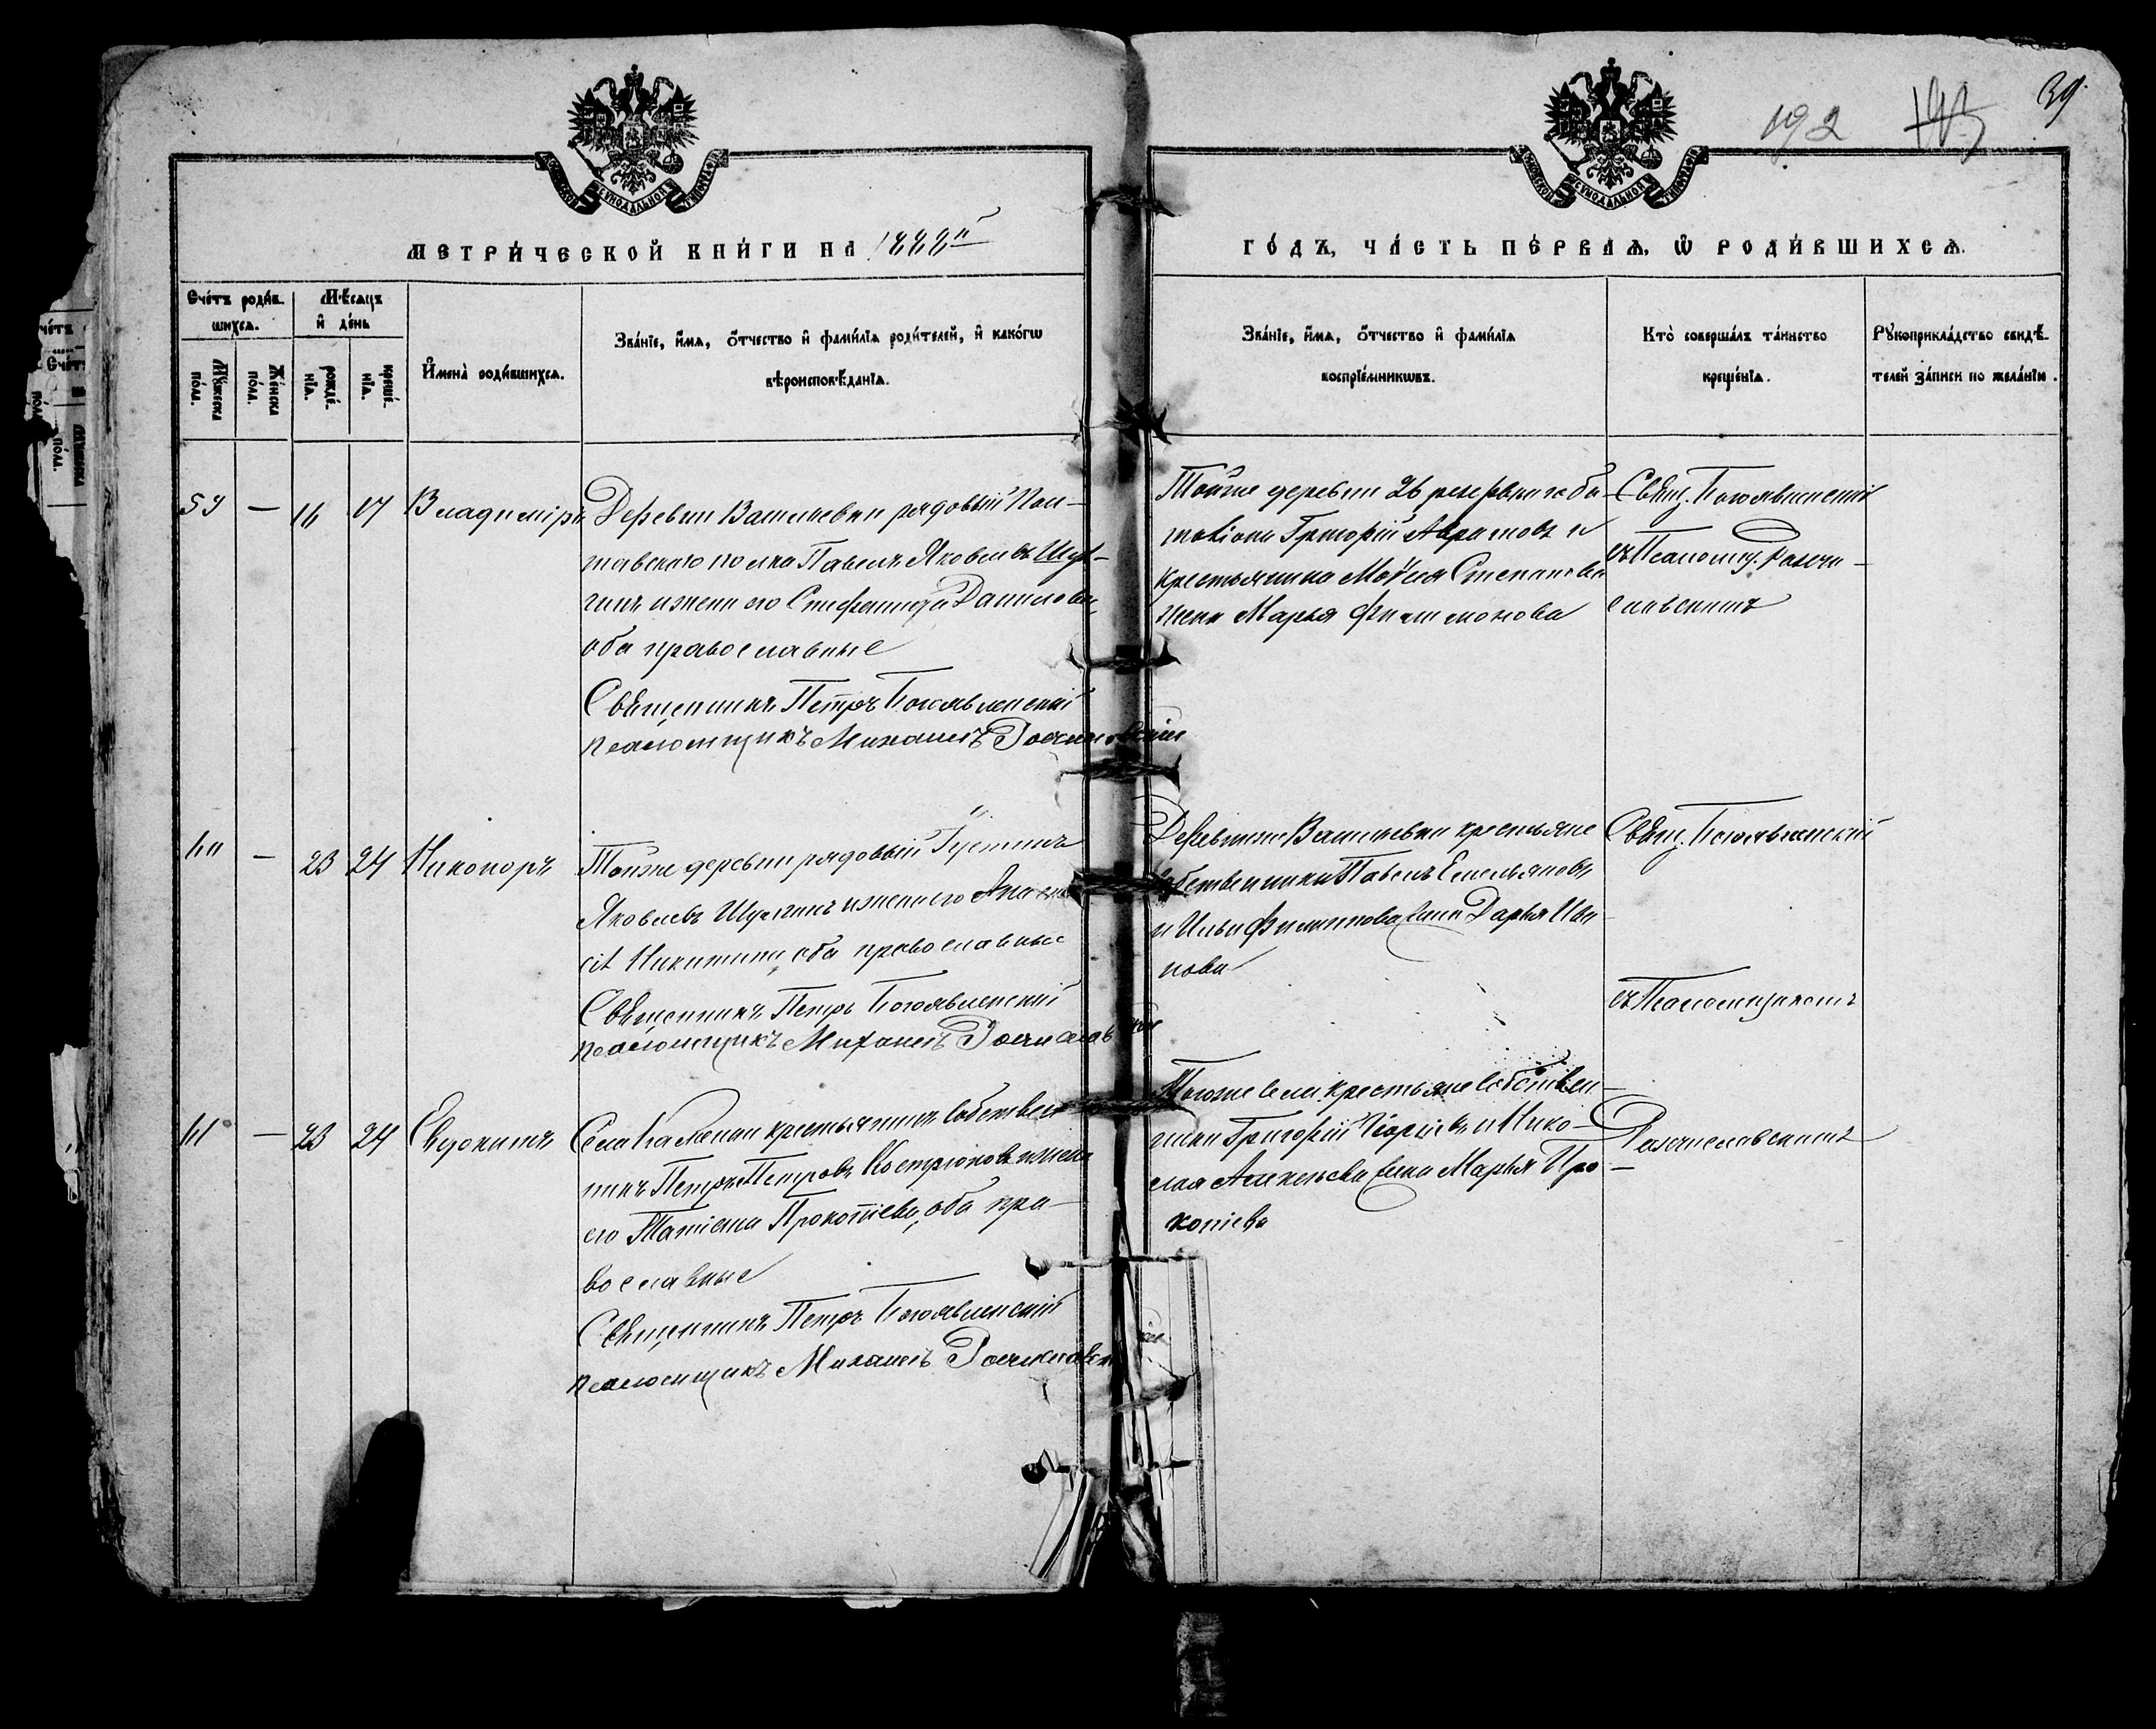 192
39
МЕТРИ́ЧЕСКОЙ КНИ́ГИ НА 1888й
ГО́ДЪ, ЧА́СТЬ ПЕ́РВАЯ, Ѡ РОДИ́ВШИХСЯ.
Сче́тъ роди́в
шихся.
Мѣ́сяцъ
и҆ де́нь
Му́жеска
по́ла.
Же́нска
по́ла.
рожде́
нїѧ.
креще́
нїѧ.
И҆мена̀ роди́вшихся.
Зва́нїе, и҆́мѧ, ѻ҆́тчество и҆ фами́лїѧ роди́телей, и҆ како́гѡ
вѣроисповѣ́данїѧ.
Зва́нїе, и҆́мѧ, ѻ҆́тчество и҆ фами́лїѧ
воспрїе́мникѡвъ.
Кто̀ соверша́лъ та́инство
креще́нїѧ.
Рꙋкоприкла́дство свидѣ́
телей за́писи по жела́нїю.
59 — 16 17 Владиміръ
Деревни Васильевки рядовый Пол-
тавского полка Павелъ Яковлевъ Шул-
гинъ и жена его Стефанида Данилова,
оба православные
Священникъ Петръ Богоявленскій
псаломщикъ Михаилъ
Тойже деревни 26 резервнаго ба-
таліона Григорій Аврамовъ и
крестьянина Моѵсея Степанова
жена Марья Филимонова
Свящ. Богоявленскій
съ Псаломщ.
60 — 23 24 Никоноръ
Тойже деревни рядовый Густинъ
Яковлевъ Шулгинъ и жена его
Никитина, оба православные
Священникъ Петръ Богоявленскій
псаломщикъ Михаилъ
Деревни же Васильевки крестьяне
собственники Павелъ Емельяновъ
и Ильи Филиппова жена Дарья Ива
нова
Свящ. Богоявленскій
съ Псаломщикомъ
61 — 23 24 Евдокимъ
Села Каменки крестьянинъ собствен
никъ Петръ Петровъ Костроковъ и жена
его Татіана Прокопіева, оба пра-
вославные
Священникъ Петръ Богоявленскій
псаломщикъ Михаилъ
Тогоже села крестьяне собствен-
ники Григорій Георгіевъ и Нико-
лая Алексѣева жена Марья Про-
копіева